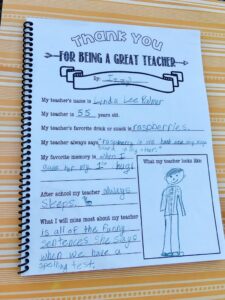 Thank You
FOR BEING A GREAT TEACHER
By:
My teacher's name is Lynda Lee
My teacher is 55 years old.
My teacher's favorite drink or snack is raspberries.
My teacher always says "raspberry is the best
My favorite memory is when I
my 1st hug.
After school my teacher always
sleeps.
What I will miss most about my teacher
is all of the funny
sentences she says
when we have a
spelling test.
What my teacher looks like: